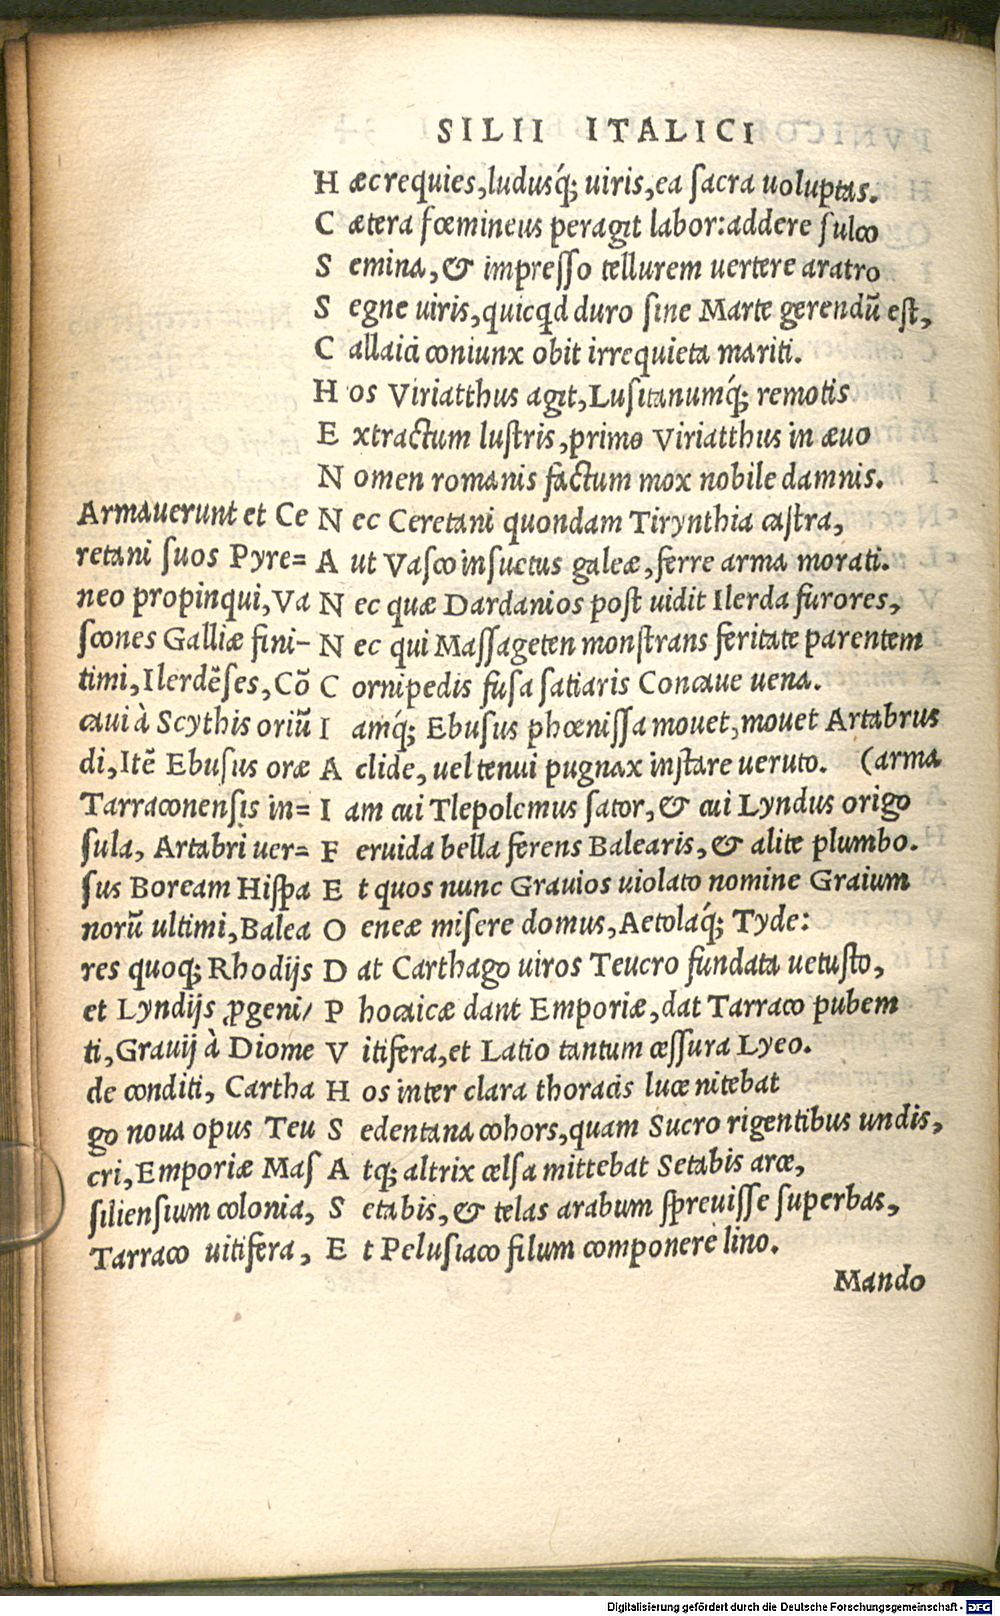 SILII ITALICI
Hæc requies, ludusq́; uiris, ea sacra uoluptas.
Cætera fœmineus peragit labor: addere sulco
Semina, & impresso tellurem uertere aratro
Segne uiris, quicqd duro sine Marte gerendũ est,
Callaici coniunx obit irrequieta mariti.
Hos Viriatthus agit, Lusitanumq́; remotis
Extractum lustris, primo Viriatthus in æuo
Nomen romanis factum mox nobile damnis.
Nec Ceretani quondam Tirynthia castra,
Aut Vasco insuetus galeæ, ferre arma morati.
Nec quæ Dardanios post uidit Ilerda furores,
Nec qui Massageten monstrans feritate parentem
Cornipedis fusa satiaris Concaue uena.
Iamq́; Ebusus phœnissa mouet, mouet Artabrus
Aclide, uel tenui pugnax instare ueruto. (arma
Iam cui Tlepolemus sator, & cui Lyndus origo
Feruida bella ferens Balearis, & alite plumbo.
Et quos nunc Grauios uiolato nomine Graium
Oeneæ misere domus, Aetolaq́; Tyde:
Dat Carthago uiros Teucro fundata uetusto,
Phocaicæ dant Emporiæ, dat Tarraco pubem
Vitifera, et Latio tantum cessura Lyeo.
Hos inter clara thoracis luce nitebat
Sedentana cohors, quam Sucro rigentibus undis,
Atq; altrix celsa mittebat Setabis arce,
Setabis, & telas arabum spreuisse superbas,
Et Pelusiaco filum componere lino.
Mando
Armauerunt et Ce
retani suos Pyre=
neo propinqui, Va
scones Galliæ fini-
timi, Ilerdẽses, Cõ
caui à Scythis oriũ
di, Itẽ Ebusus oræ
Tarraconensis in=
sula, Artabri uer=
sus Boream Hispa
norũ ultimi, Balea
res quoq; Rhodijs
et Lyndijs ꝓgeni/
ti, Grauij à Diome
de conditi, Cartha
go noua opus Teu
cri, Emporiæ Mas
siliensium colonia,
Tarraco uitifera,
Digitalisierung gefördert durch die Deutsche Forschungsgemeinschaft - DFG